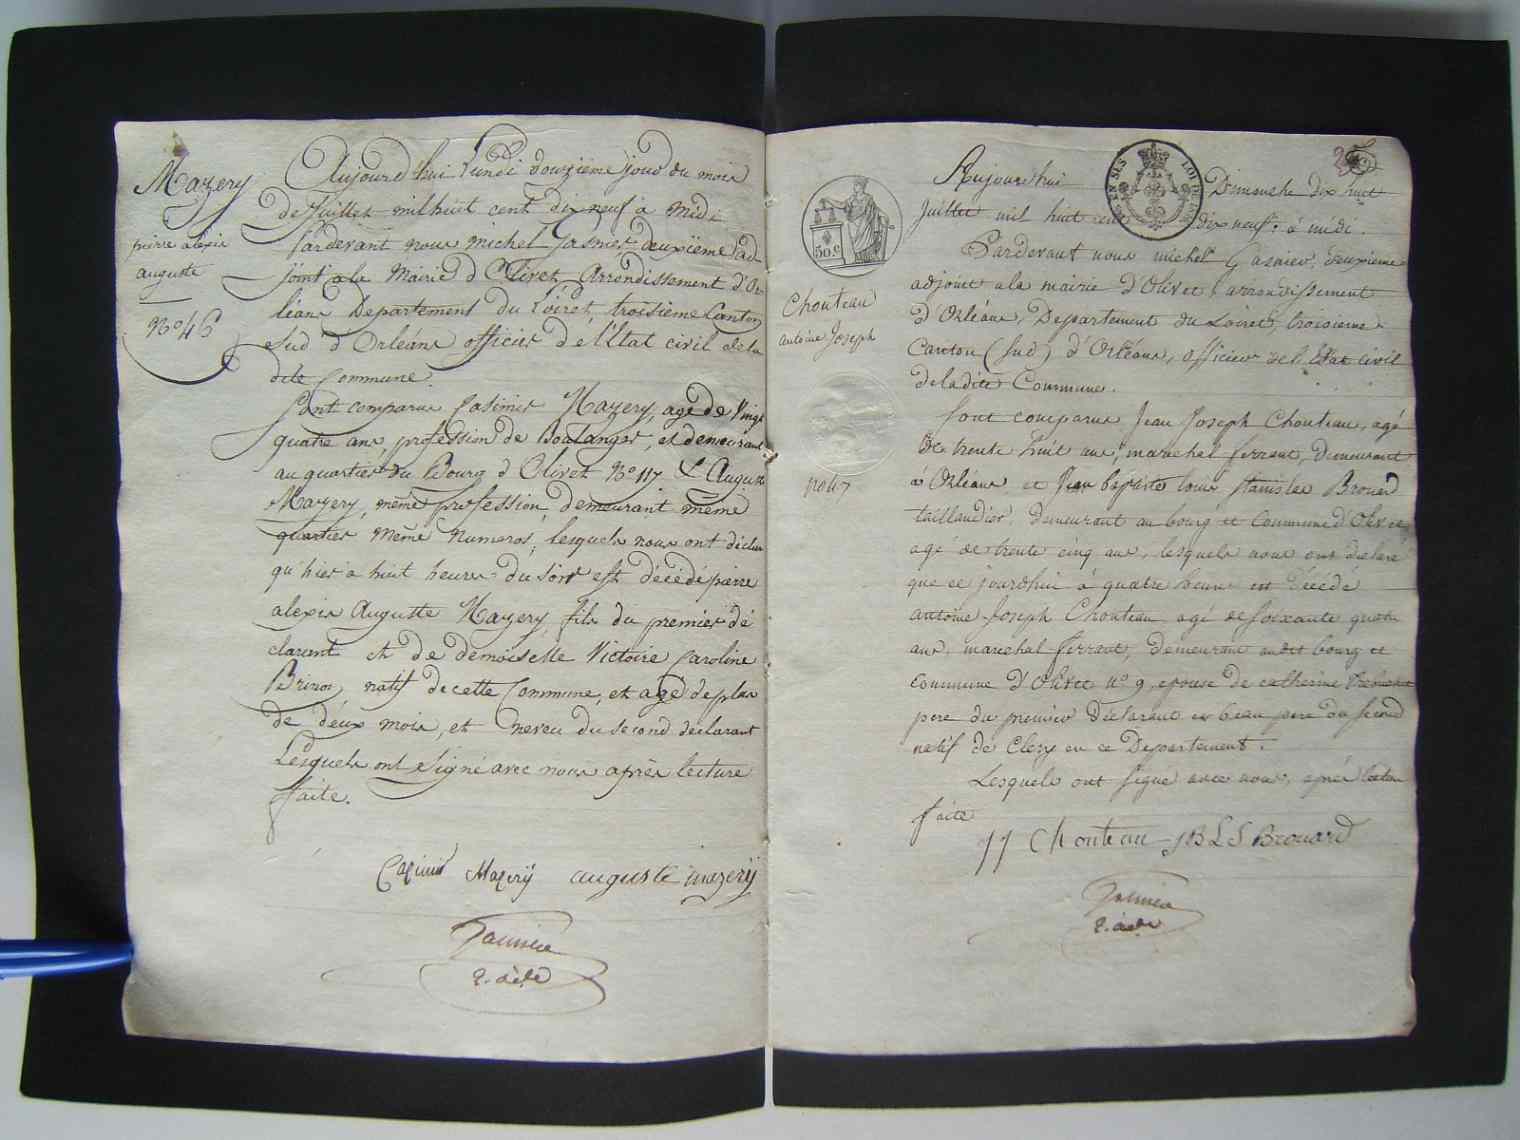 Mazery
pierre alexis
auguste
No 46
Aujourd'hui Lundi douzieme jour du mois
de Juillet mil huit cent dix neuf à Midi
Pardevant nous michel Gasnier deuxième ad-
joint ala Mairie d'Olivet Arrondissement d'Or
léans Departement du Loiret, troisieme Canton
sud d'Orléans officier de l'Etat civil de la
dite Commune.
Sont comparus Casimir Mazery, agé de Vingt
quatre ans, profession de Boulanger, et demeurant
au quartier du Bourg d'Olivet No 117 & Auguste
Mazery, même profession demeurant même
quartier même numeros, lesquels nous ont déclaré
qu'hier à huit heures du soir est décédé pierre
alexis Auguste Mazery fils du premier dé
clarant et de demoiselle Victoire Caroline
natif de cette Commune, et agé de plus
de deux mois, et neveu du second déclarant
Lesquels ont signé avec nous après lecture
faite.
Casimir Mazerÿ auguste mazerÿ
Gasnier
2. adt
50 c
Chouteau
antoine Joseph
no 47
Aujourdhui Dimanche dix huit
Juillet mil huit cent dix neuf, à midi.
Pardevant nous michel Gasnier, deuxieme
adjoint a la mairie d'Olivet, arrondissement
d'Orléans, Departement du Loiret, troisieme
Canton (sud) d'Orléans, officier de l'Etat civil
de ladite Commune.
Sont comparus Jean Joseph Chouteau, agé
de trente huit ans, marechal ferrant, Demeurant
à Orléans, et Jean baptiste louis stanislas Brouard
taillandier, Demeurant au bourg et Commune d'Olivet
agé de trente cinq ans, lesquels nous ont declaré
que ce jourdhui à quatre heures est Décédé
antoine Joseph Chouteau, agé de soixante quatre
ans, marechal ferrant, Demeurant audit bourg et
commune d'Olivet no 9, epoux de catherine
pere du premier Déclarant et beau pere du second
natif de Clery en ce Departement.
Lesquels ont signé avec nous, après lecture
faite
JJ Chouteau JBLS Brouard
Gasnier
2. adt